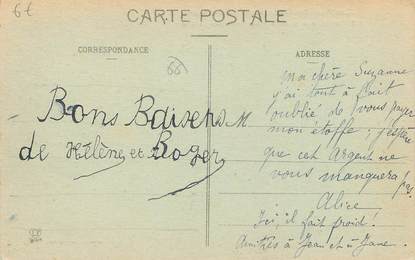 6€
CARTE POSTALE
CORRESPONDANCE
ADRESSE
66
Bons Baisers
de Hélène et Roger
M
Ma chère Suzanne
j'ai tout à fait
oublié de vous payer
mon étoffe ; j'espère
que cet argent ne
vous manquera pas
Alice
Ici, il fait froid !
Amitiés à Jean et à Jane.